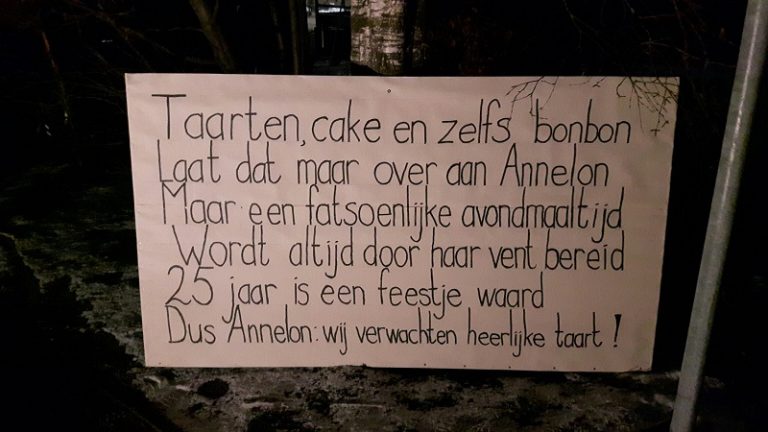 Taarten, cake en zelfs bonbon
Laat dat maar over aan Annelon
Maar een fatsoenlijke avondmaaltijd
Wordt altijd door haar vent bereid
25 jaar is een feestje waard
Dus Annelon: wij verwachten heerlijke taart!